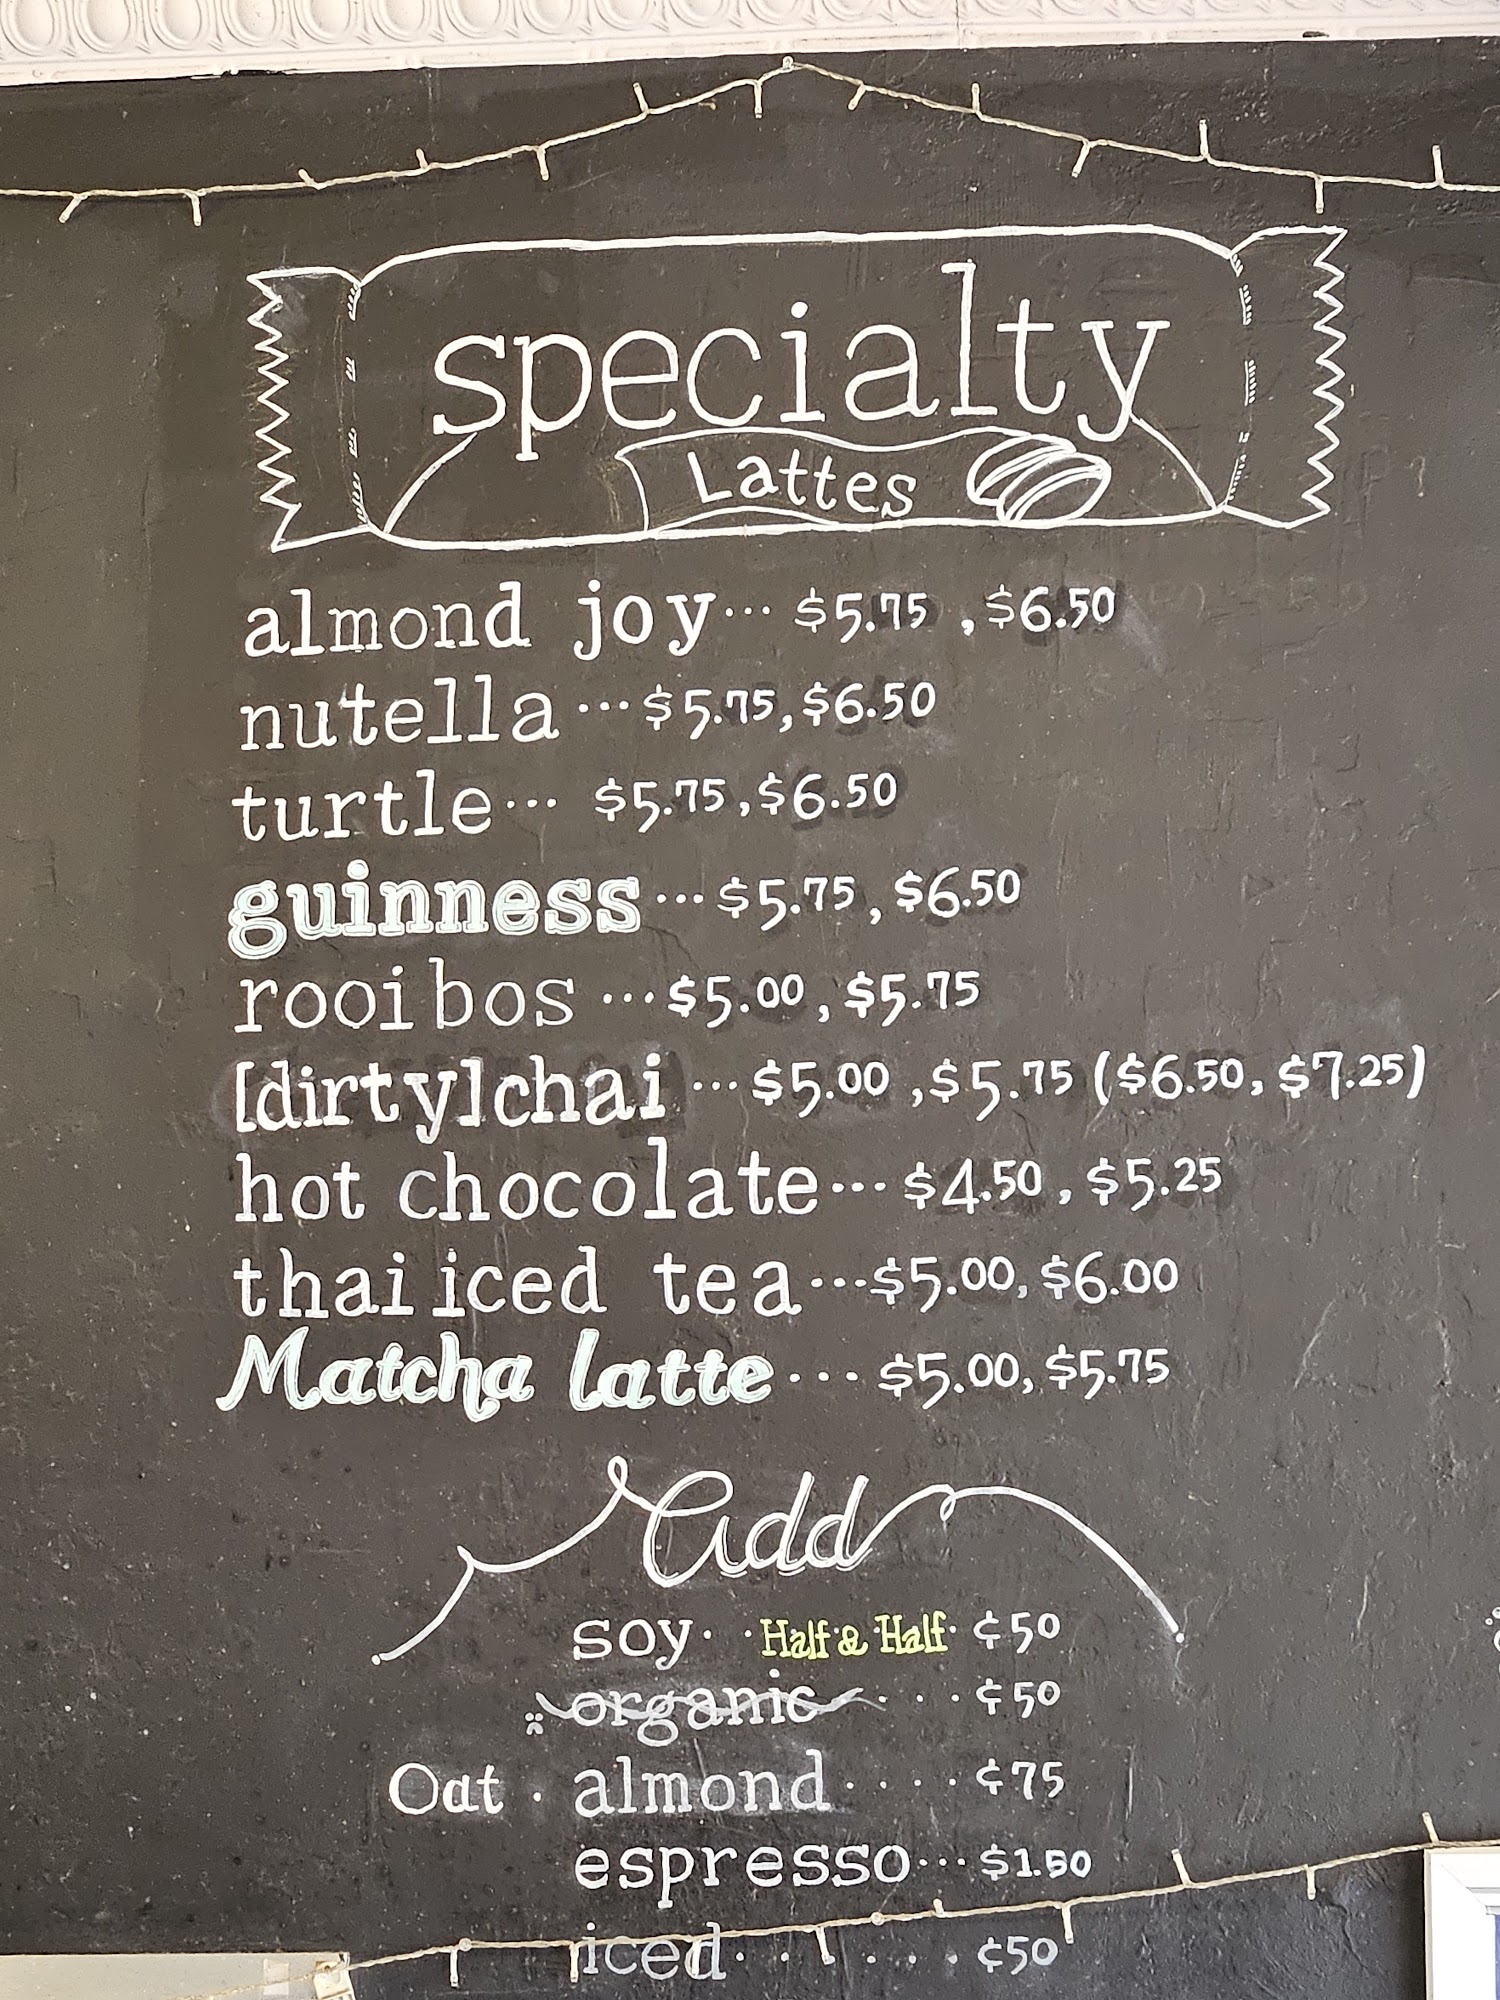 specialty
Lattes
almond joy... $5.75, $6.50
nutella... $5.75, $6.50
turtle... $5.75, $6.50
guinness... $5.75, $6.50
rooibos... $5.00, $5.75
[dirty]chai... $5.00, $5.75 ($6.50, $7.25)
hot chocolate... $4.50, $5.25
thai iced tea... $5.00, $6.00
Matcha latte... $5.00, $5.75
Add
soy. . Half & Half. ¢50
organic. . . . ¢50
Oat . almond. . . . ¢75
espresso... $1.50
iced. . . . . . ¢50